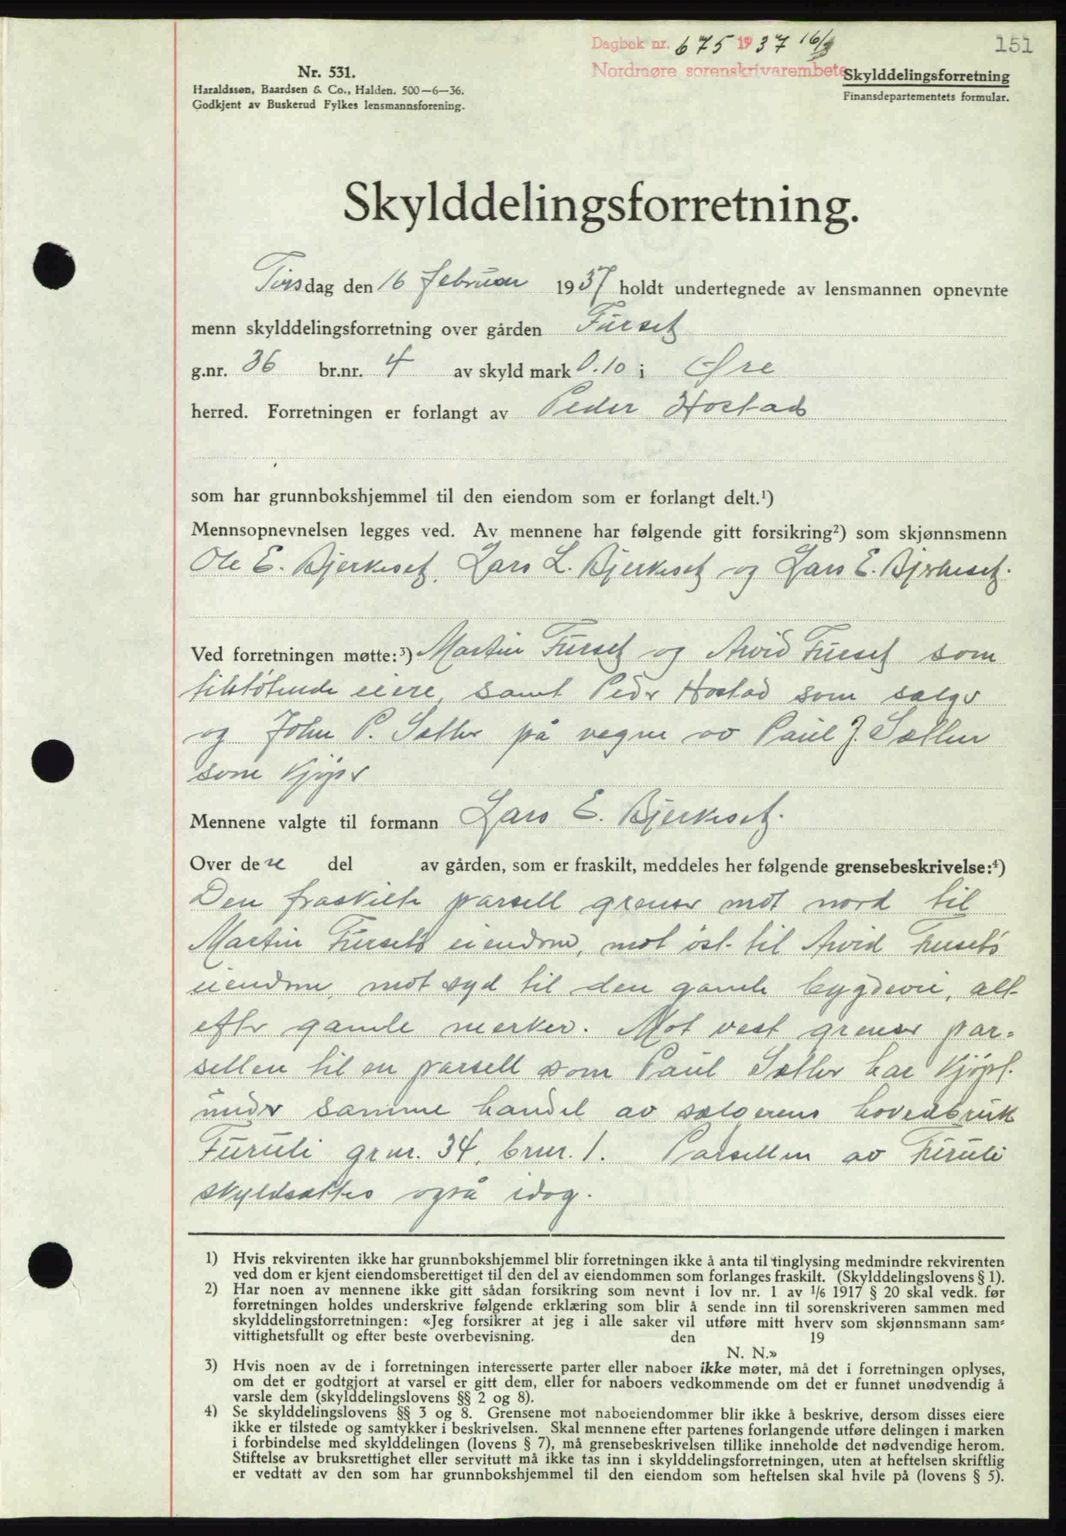 Dagbok nr. 675 1937 16/3
151
Nordmøre sorenskrivarembete
Nr. 531.
Haraldssøn, Baardsen & Co., Halden. 500—6—36.
Godkjent av Buskerud Fylkes lensmannsforening.
Skylddelingsforretning
Finansdepartementets formular.
Skylddelingsforretning.
Tirsdag den 16 februar 1937 holdt undertegnede av lensmannen opnevnte
menn skylddelingsforretning over gården Furset
g.nr. 36 br.nr. 4 av skyld mark 0.10 i Øre
herred. Forretningen er forlangt av Peder Hostad
som har grunnbokshjemmel til den eiendom som er forlangt delt.¹)
Mennsopnevnelsen legges ved. Av mennene har følgende gitt forsikring²) som skjønnsmenn
Ole E. Bjerkeset, Lars L. Bjerkeset og Lars E. Bjerkeset.
Ved forretningen møtte:³) Martin Furset og Arvid Furset som
tilstøtende eiere, samt Peder Hostad som sælger
og John P. Sæther på vegne av Paul J. Sæther
som kjøper
Mennene valgte til formann Lars E. Bjerkeset.
Over dene del av gården, som er fraskilt, meddeles her følgende grensebeskrivelse:⁴)
Den fraskilte parsell grenser mot nord til
Martin Fursets eiendom, mot øst til Arvid Fursets
eiendom, mot syd til den gamle bygdevei, alt
efter gamle merker. Mot vest grenser par=
sellen til en parsell som Paul Sæther har kjøpt
under samme handel av sælgerens hovedbruk
Furuli grnr. 34, brnr. 1. Parsellen av Furuli
skyldsættes også idag.
1) Hvis rekvirenten ikke har grunnbokshjemmel blir forretningen ikke å anta til tinglysing medmindre rekvirenten
ved dom er kjent eiendomsberettiget til den del av eiendommen som forlanges fraskilt. (Skylddelingslovens § 1).
2) Har noen av mennene ikke gitt sådan forsikring som nevnt i lov nr. 1 av 1/6 1917 § 20 skal vedk. før
forretningen holdes underskrive følgende erklæring som blir å sende inn til sorenskriveren sammen med
skylddelingsforretningen: «Jeg forsikrer at jeg i alle saker vil utføre mitt hverv som skjønnsmann sam=
vittighetsfullt og efter beste overbevisning. den 19
N. N.»
3) Hvis noen av de i forretningen interesserte parter eller naboer ikke møter, må det i forretningen oplyses,
om det er godtgjort at varsel er gitt dem, eller for naboers vedkommende om det er funnet unødvendig å
varsle dem (skylddelingslovens §§ 2 og 8).
4) Se skylddelingslovens §§ 3 og 8. Grensene mot naboeiendommer blir ikke å beskrive, dersom disses eiere
ikke er tilstede og samtykker i beskrivelsen. Skal mennene efter partenes forlangende utføre delingen i marken
i forbindelse med skylddelingen (lovens § 7), må grensebeskrivelsen tillike inneholde det nødvendige herom.
Stiftelse av bruksrettighet eller servitutt må ikke tas inn i skylddelingsforretningen, uten at heftelsen skriftlig
er vedtatt av den som har grunnbokshjemmel til den eiendom som heftelsen skal hvile på (lovens § 5).